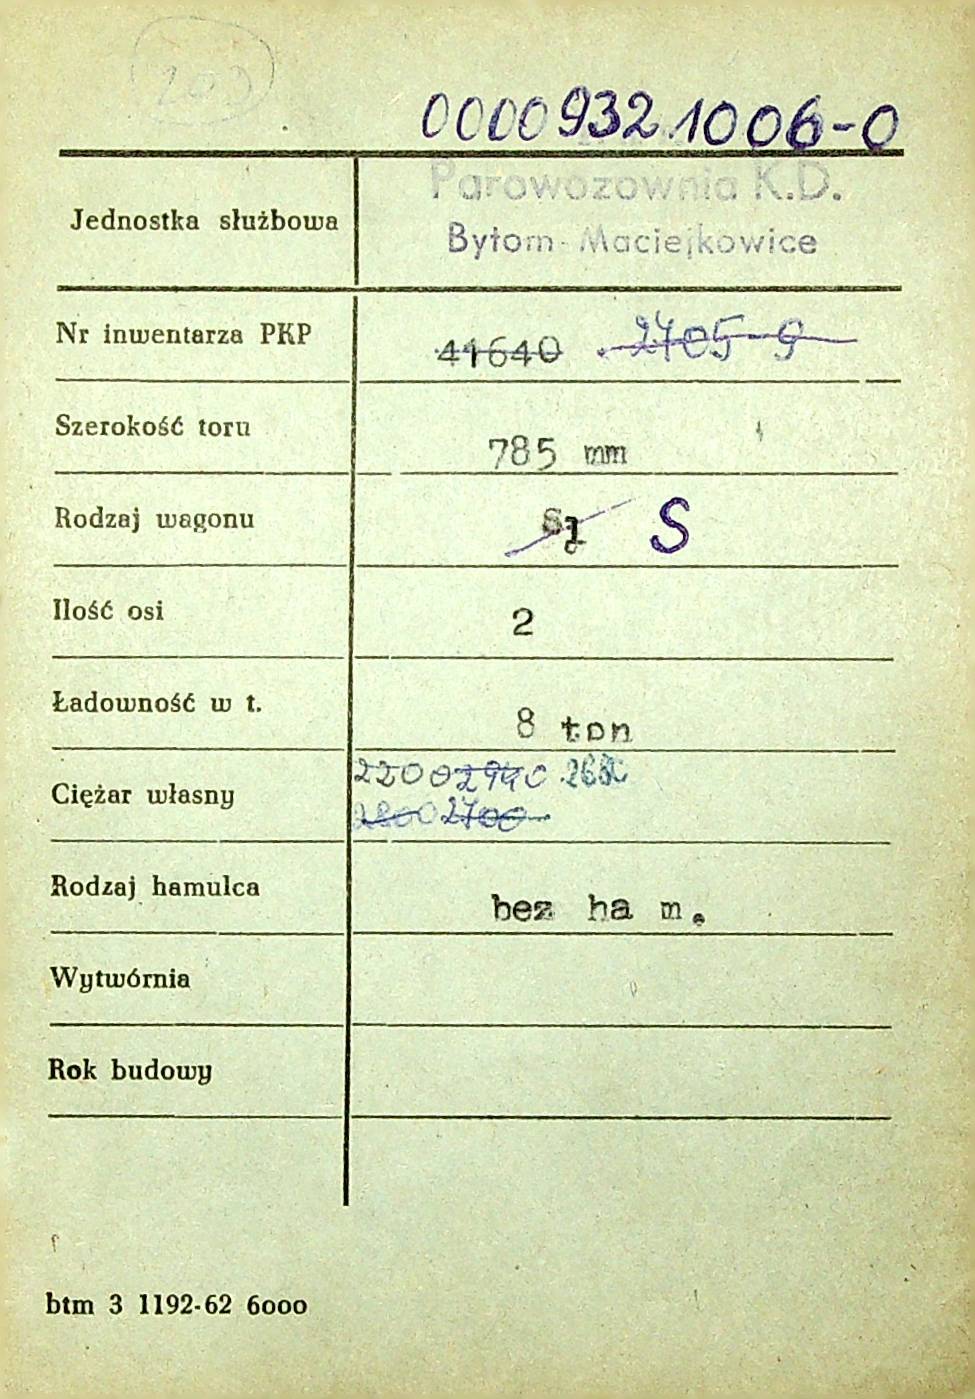 203
0000932 1006-0
Jednostka służbowa Parowozownia K.D.
Bytom-Maciejkowice
Nr inwentarza PKP 41640 2705-9
Szerokość toru 785 mm
Rodzaj wagonu S
Ilość osi 2
Ładowność w t. 8 ton
Ciężar własny 2200 2940
2800 2700
Rodzaj hamulca bez ha m.
Wytwórnia
Rok budowy
btm 3 1192-62 6000